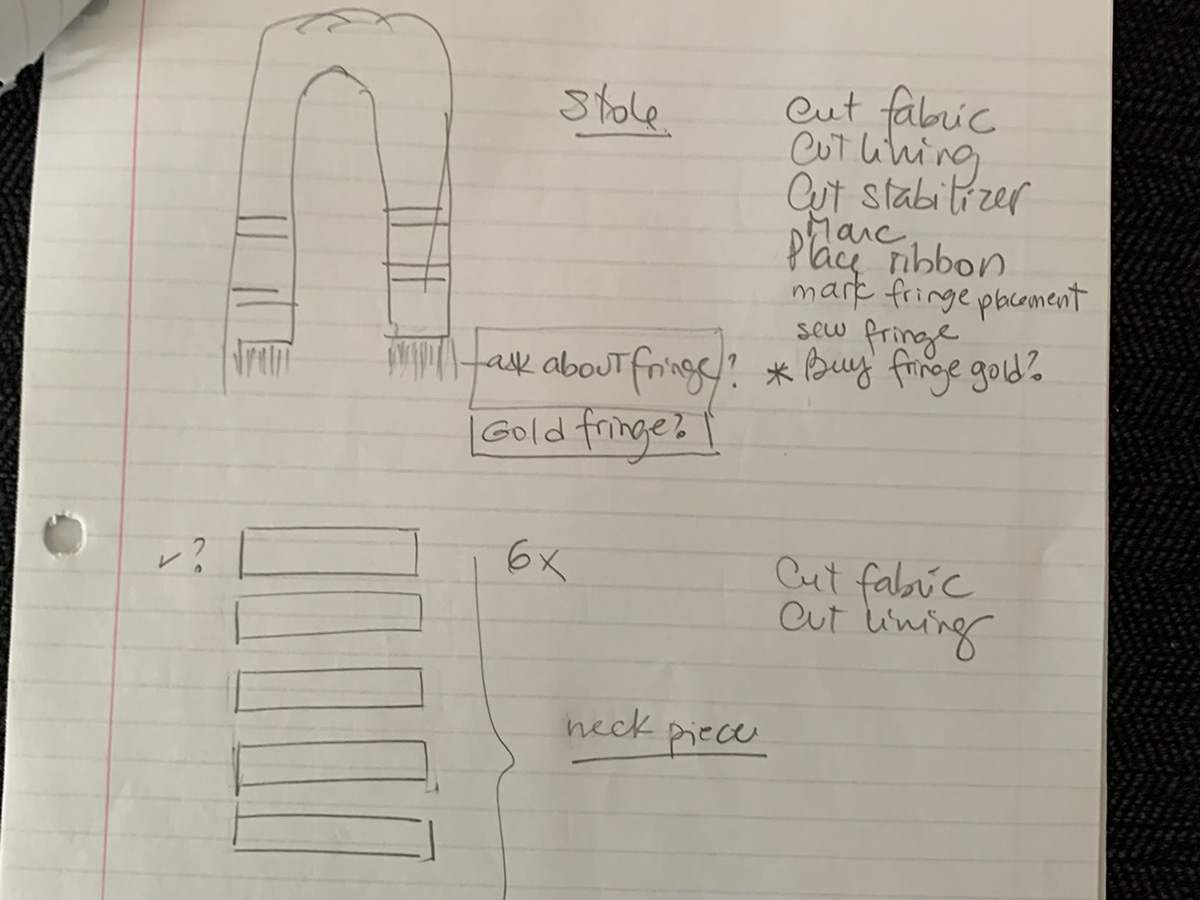 Stole
Cut fabric
Cut lining
Cut stabilizer
Marc
Place ribbon
mark fringe placement
sew fringe
* Buy fringe gold?
ask about fringe?
Gold fringe?
✓?
6x
Cut fabric
Cut lining
neck piece